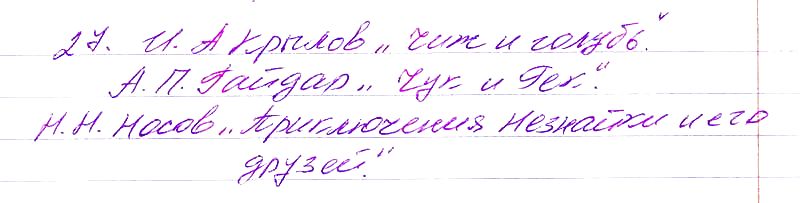 27. И. А Крылов „Чиж и голубь".
А. П. Гайдар „Чук и Гек".
Н. Н. Носов „Приключения Незнайки и его
друзей."